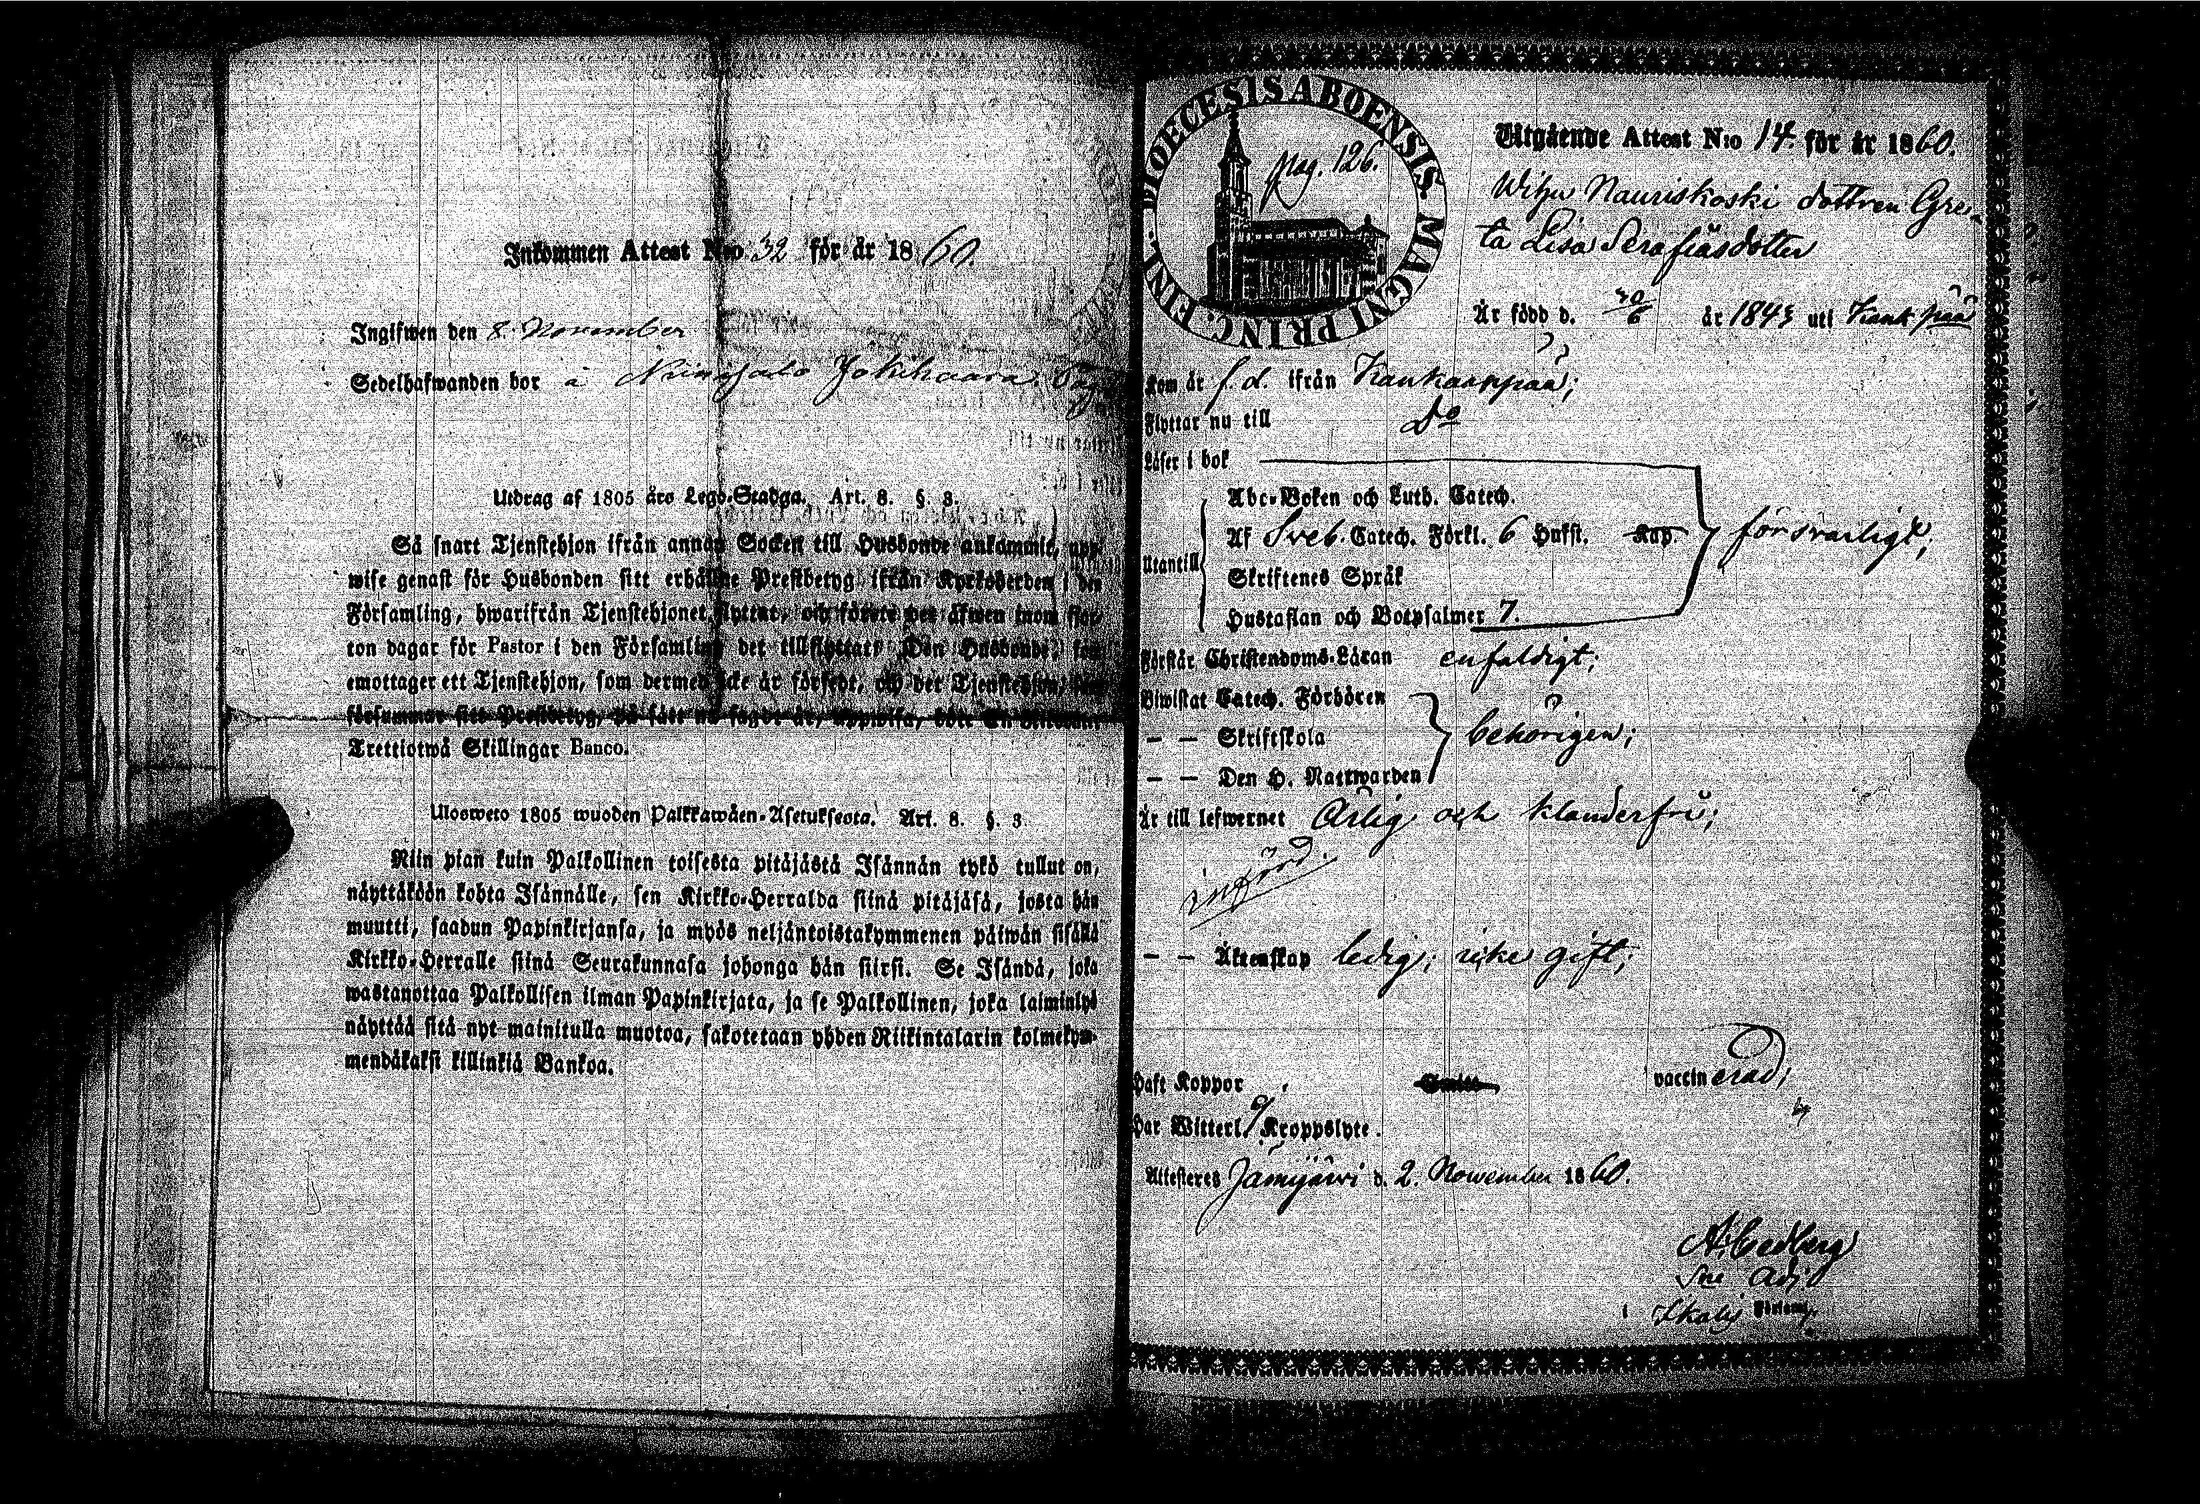 Inkommen Attest N:o 32 för år 1860.
Ingifwen den 8. November
Sedelhafwanden bor å Niinisalo Jokihaara
Utdrag af 1805 års Lego-Stadga. Art. 8. §. 3.
Så snart Tjenstehjon ifrån annan Socken till Husbonde ankommit, upp-
wise genast för Husbonden sitt erhållne Prestbetyg ifrån Kyrkoherden i den
Församling, hwarifrån Tjenstehjonet flyttat, och förete det äfwen inom fjor-
ton dagar för Pastor i den Församling det tillflyttat. Den Husbonde, som
emottager ett Tjenstehjon, som dermed icke är försedt, och det Tjenstehjon, som
försummar sitt Prestbetyg, på sätt nu sagdt är, uppwisa, böte En Riksdaler
Trettiotwå Skillingar Banco.
Ulosweto 1805 wuoden Palkkawäen-Asetuksesta. Art. 8. §. 3.
Niin pian kuin Palkollinen toisesta pitäjästä Isännän tykö tullut on,
näyttäköön kohta Isännälle, sen Kirkko-Herralda siinä pitäjäsä, josta hän
muutti, saadun Papinkirjansa, ja myös neljäntoistakymmenen päiwän sisällä
Kirkko-Herralle siinä Seurakunnasa johonga hän siirsi. Se Isändä, joka
wastanottaa Palkollisen ilman Papinkirjata, ja se Palkollinen, joka laiminlyö
näyttää sitä nyt mainitulla muotoa, sakotetaan yhden Riikintalarin kolmekym-
mendäkaksi killinkiä Bankoa.
DIOECESIS ABOENSIS MAGNI PRINC. FINL.
pag. 126.
Utgående Attest N:o 14. för år 1860.
Wihu Nauriskoski dottren Gre-
ta Lisa Serafiasdotter
Är född d. 30/6 år 1843 uti Kankpää
Kom år f. d. ifrån Kankaanpää;
Flyttar nu till Do
Läser i bok
Utantill
Abc-Boken och Luth. Catech.
Af Sveb. Catech. Förkl. 6 Hufst. Kap. försvarligt;
Skriftenes Språk
Hustaflan och Botpsalmer 7.
Förstår Christendoms-Läran enfaldigt;
Biwistat Catech. Förhören
— — Skriftskola behörigen;
— — Den H. Nattwarden
Är till lefwernet Ärlig och klanderfri;
införd.
— — Äktenskap ledig; icke gift;
Haft Koppor vaccinerad;
Har Witterl. Kroppslyte.
Attesteras Jämijärwi d. 2. November 1860.
A. Cedberg
Sne Adj.
i Ikalis Församl.